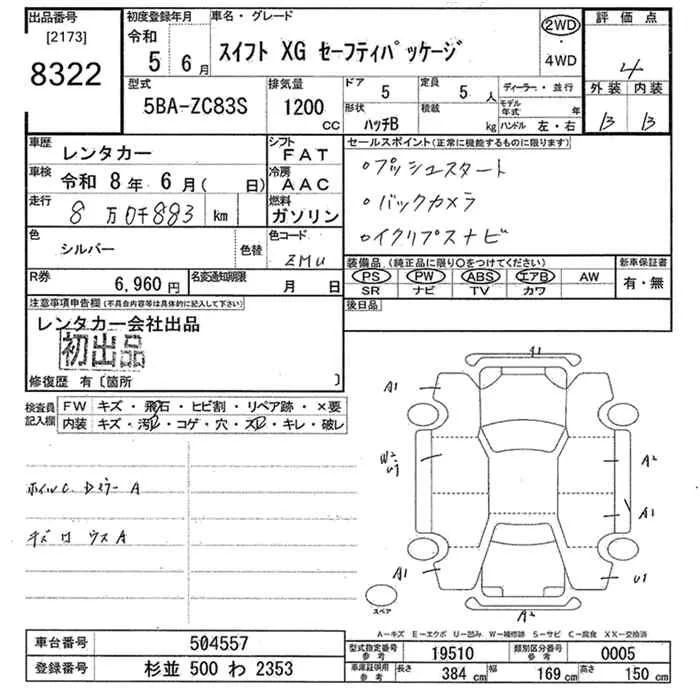 出品番号
[2173]
8322
初度登録年月
令和
5 6月
車名・グレード
スイフト XG セーフティパッケージ
2WD
4WD
評価点
4
外装 内装
B B
型式
5BA-ZC83S
排気量
1200
CC
ドア
5
定員
5 人
形状
ハッチB
積載
kg
ディーラー・並行
モデル年式 年
ハンドル 左・右
車歴
レンタカー
シフト
FAT
車検
令和 8年 6月( 日)
冷房
AAC
走行
8万0千883 km
燃料
ガソリン
色
シルバー
色替
色コード
ZMU
R券
6,960 円
名変通知期限
月 日
セールスポイント(正常に機能するものに限ります)
・プッシュスタート
・バックカメラ
・イクリプスナビ
装備品 (純正品に限り〇をつけてください)
PS PW ABS エアB AW
SR ナビ TV カワ
新車保証書
有・無
後日品
注意事項申告欄 (不具合内容等は具体的に記入して下さい)
レンタカー会社出品
初出品
修復歴 有〔箇所 〕
検査員記入欄
FW キズ・飛石・ヒビ割・リペア跡・×要
内装 キズ・汚・コゲ・穴・スレ・キレ・破レ
ホイルC Dミラー A
キズ ロ ウス A
A1
A1
W2
U1
A2
A1
A1
U1
A2
スペア
A―キズ E―エクボ U―凹み W―補修跡 S―サビ C―腐食 XX―交換済
車台番号 504557
登録番号 杉並 500 わ 2353
型式指定番号 参考 19510
類別区分番号 参考 0005
車庫証明用 参考
長さ 384 cm 幅 169 cm 高さ 150 cm